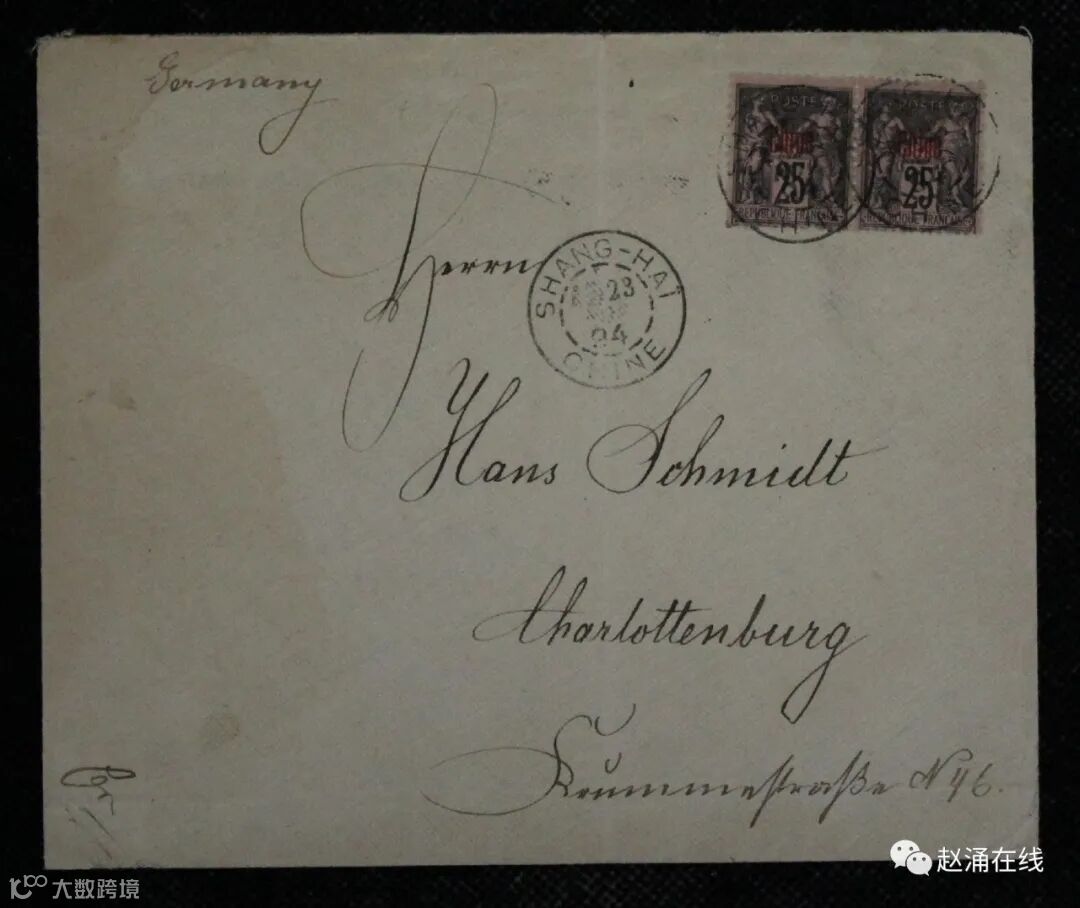 Germany
POSTE POSTE
Chine Chine
25 25
REPUBLIQUE FRANÇAISE REPUBLIQUE FRANÇAISE
Herrn
SHANG-HAÏ
23
94
CHINE
Hans Schmidt
Charlottenburg
Krummestraße N 46.
赵涌在线
大数跨境